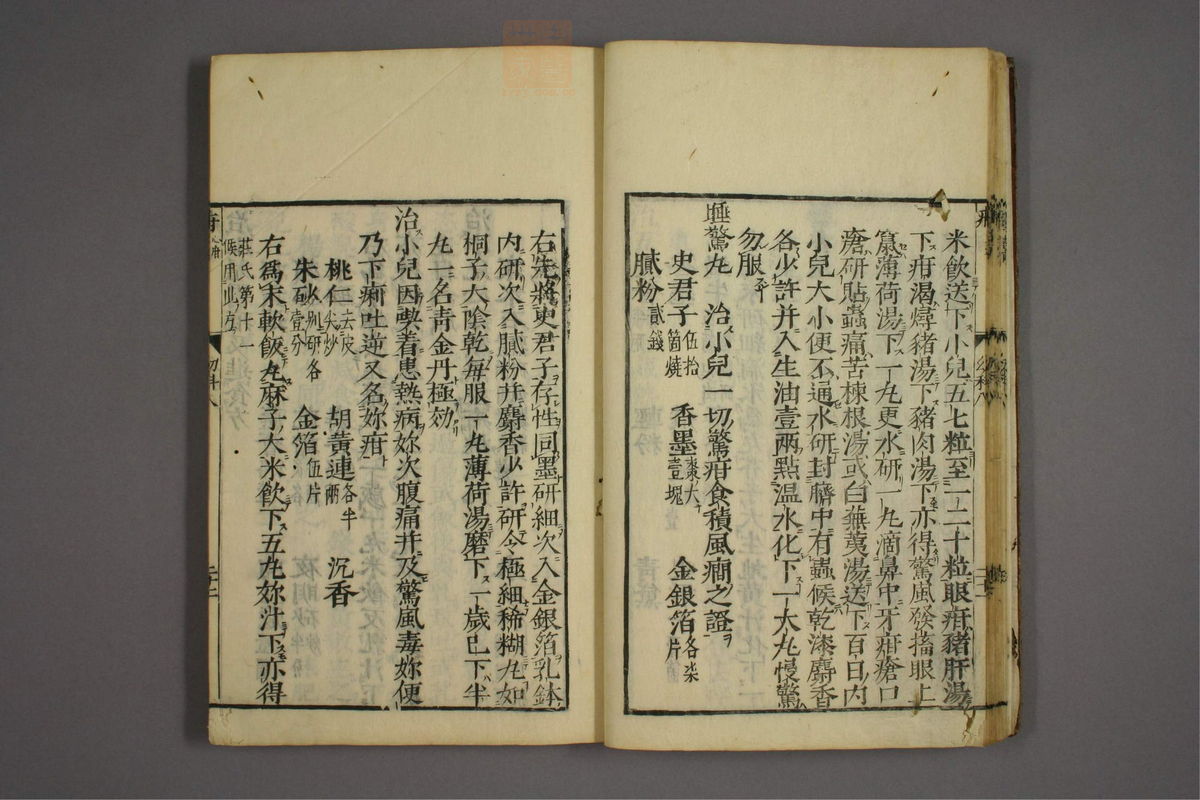 米飲送下小兒五七粒至一二十粒眼疳豬肝湯
下疳渴燖豬湯下豬肉湯下亦得驚風發搐眼上
薄荷湯下一丸更水研一丸滴鼻中牙疳瘡口
瘡研貼蟲痛苦楝根湯或白蕪荑湯送下百日內
小兒大小便不通水研封臍中有蟲候乾漆麝香
各少許并入生油壹兩點温水化下一大丸慢驚
勿服
睡驚丸 治小兒一切驚疳食積風癇之證
史君子伍拾箇燒 香墨棗大壹塊 金銀箔各柒片
膩粉貳錢
右先將史君子存性同墨研細次入金銀箔乳鉢
內研次入膩粉并麝香少許研令極細稀糊丸如
桐子大陰乾每服一丸薄荷湯磨下一歲已下半
丸一名青金丹極効
治小兒因喫着患熱病妳次腹痛并及驚風毒妳便
乃下痢吐逆又名妳疳
桃仁去皮尖炒 胡黃連各半兩 沉香
朱砂別研各壹分 金箔伍片
右爲末軟飯丸麻子大米飲下五丸妳汁下亦得
莊氏第十一
候用此方